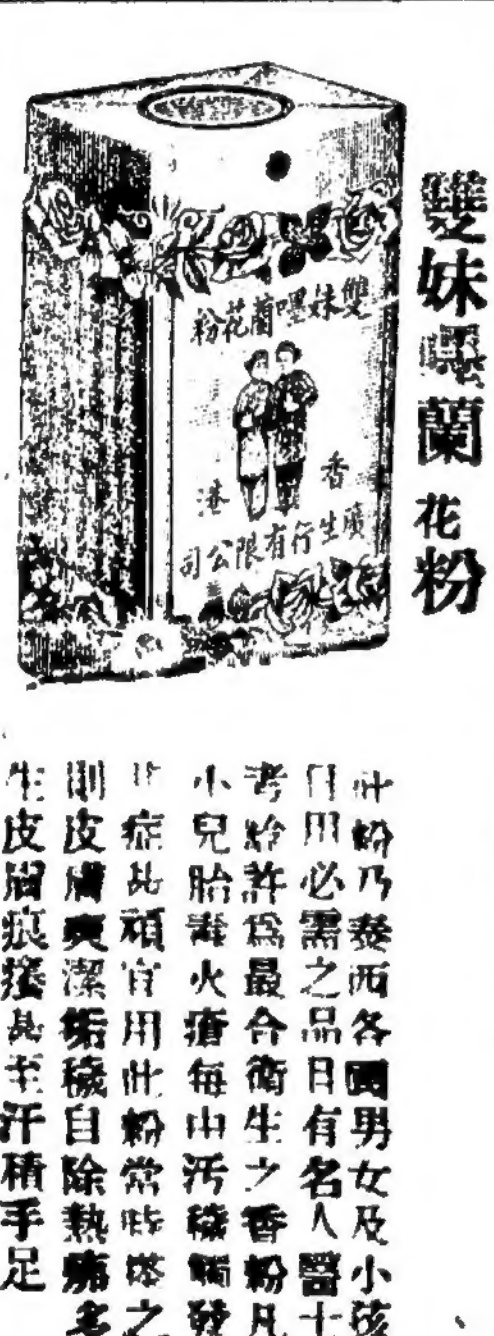 雙妹嚜蘭花粉
雙妹嚜蘭花粉
香港
廣生行有限公司
此粉乃泰西各國男女及小孩
日用必需之品且有名人醫士
考給許爲最合衛生之香粉凡
小兒胎毒火瘡每由汚穢觸發
此症甚頑宜用此粉常時搽之
則皮膚爽潔垢穢自除熱痱多
生皮膚痕癢甚至汗積手足